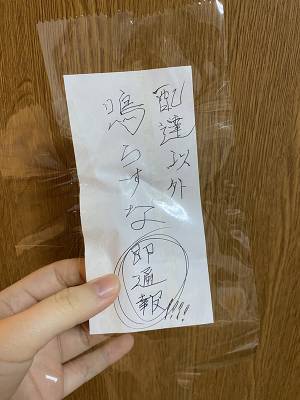 配達以外
鳴らすな
即通報!!!!